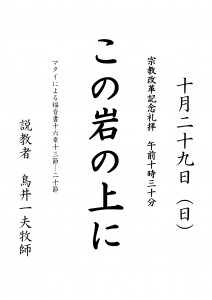 十月二十九日（日）
宗教改革記念礼拝　午前十時三十分
この岩の上に
マタイによる福音書十六章十三節―二十節
説教者　鳥井一夫牧師